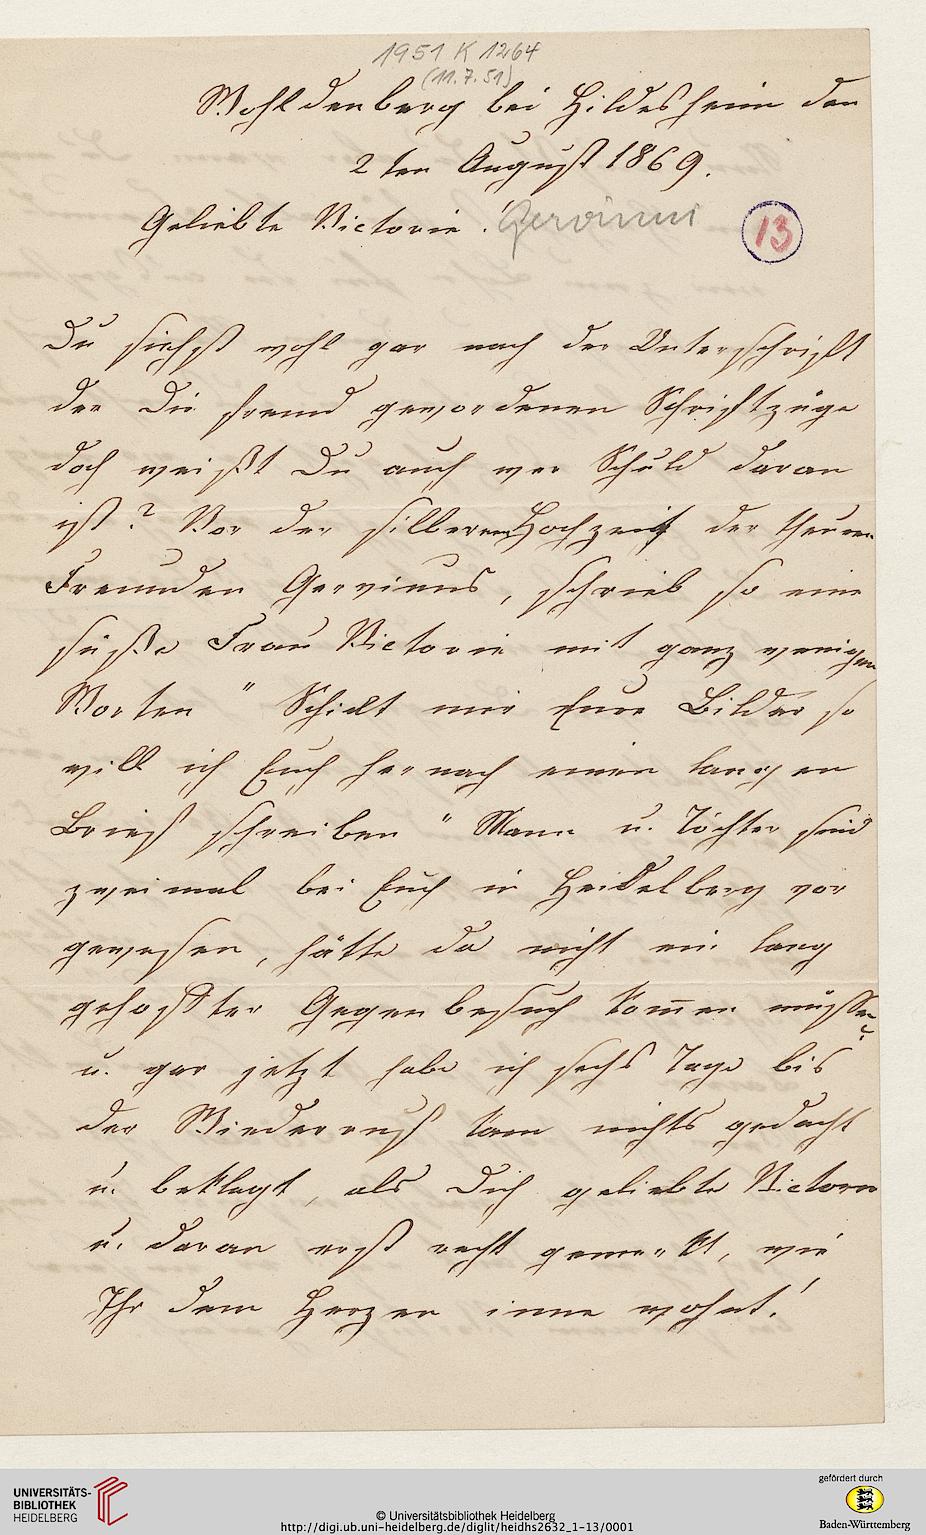 1951 K 1264
(11.7.51)
Wohldenberg bei Hildesheim den
2ten August 1869.
Geliebte Victorie! Gervinus
13
Du siehst wohl gar nach der Unterschrift
der Dir fremd gewordenen Schriftzüge
doch weißt Du auch wer Schuld daran
ist? Vor der silbernen Hochzeit der theuren
Freunden Gervinus, schrieb so eine
süße Frau Victorie mit ganz wenigen
Worten " Schickt mir Eure Bilder so
will ich Euch hernach einen langen
Brief schreiben " Mann u. Töchter sind
zweimal bei Euch in Heidelberg vor
gewesen, hätte da nicht ein lang
gehoffter Gegenbesuch kom̄en müssen?
u. gar jetzt habe ich sechs Tage bis
der Wiederruf kam nichts gedacht
u. beklagt, als Dich geliebte Victorie
u. daran erst recht gemerkt, wie
Ihr dem Herzen inne wohnt!
UNIVERSITÄTS-
BIBLIOTHEK
HEIDELBERG
© Universitätsbibliothek Heidelberg
http://digi.ub.uni-heidelberg.de/diglit/heidhs2632_1-13/0001
gefördert durch
Baden-Württemberg